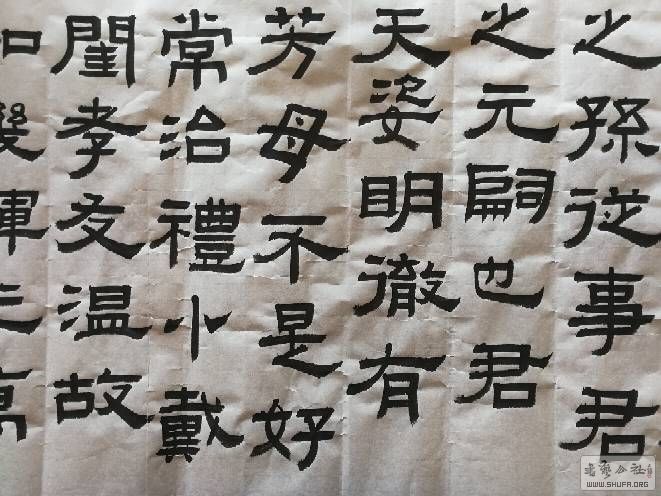 之孫從事君
之元嗣也君
天姿明徹有
芳毋不是好
常治禮小戴
閨孝友温故
書藝公社
WWW.SHUFA.ORG